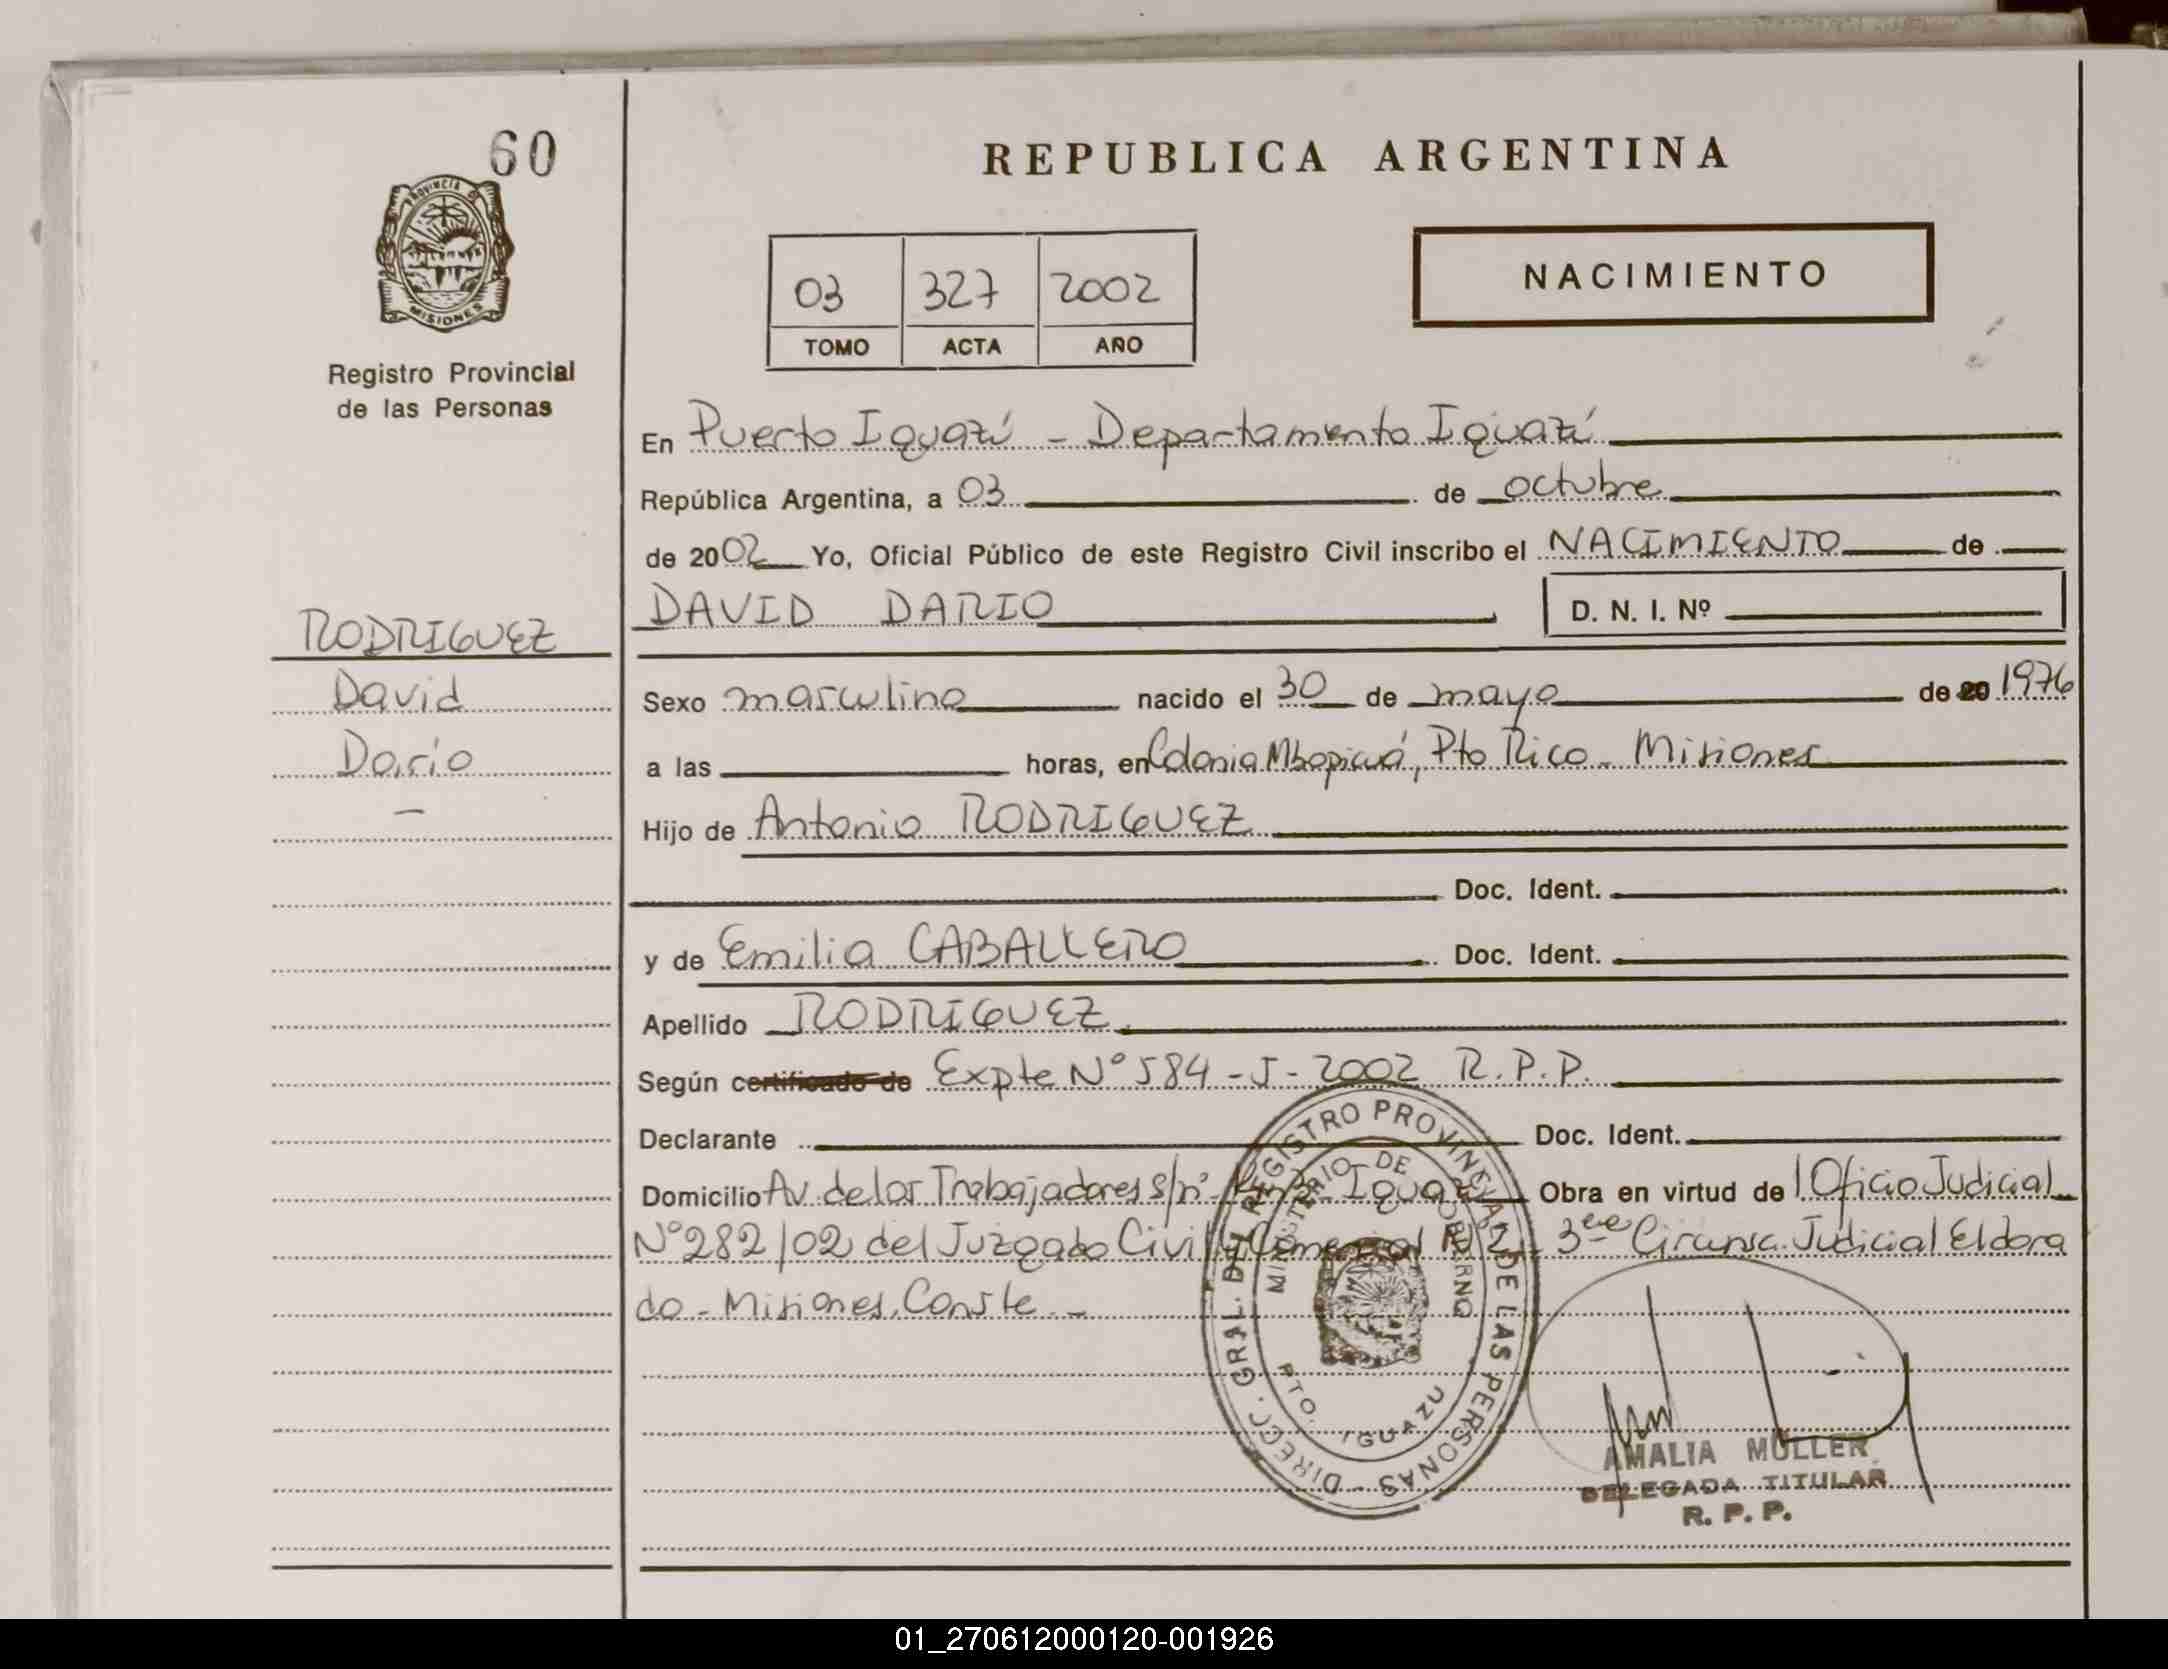 60
PROVINCIA DE
MISIONES
Registro Provincial
de las Personas
RODRIGUEZ
David
Darío
—
REPUBLICA ARGENTINA
03 327 2002
TOMO ACTA AÑO
NACIMIENTO
En Puerto Iguazú - Departamento Iguazú
República Argentina, a 03 de octubre
de 2002 Yo, Oficial Público de este Registro Civil inscribo el NACIMIENTO de
DAVID DARIO D. N. I. Nº
Sexo masculino nacido el 30 de mayo de 20 1976
a las horas, en Colonia Mbopicuá, Pto Rico - Misiones
Hijo de Antonio RODRIGUEZ
Doc. Ident.
y de Emilia CABALLERO Doc. Ident.
Apellido RODRIGUEZ
Según certificado de Expte N° 584 - J - 2002 R.P.P.
Declarante Doc. Ident.
Domicilio Av. de los Trabajadores s/n° - Iguazú Obra en virtud de 1 Oficio Judicial
N° 282/02 del Juzgado Civil y Comercial N° 2 - 3era Circunsc. Judicial Eldora
do - Misiones. Conste. -
DIRECC. GRAL. DEL REGISTRO PROVINCIAL DE LAS PERSONAS -
MINISTERIO DE GOBIERNO
PTO. IGUAZU
AMALIA MÜLLER
DELEGADA TITULAR
R. P. P.
01_270612000120-001926